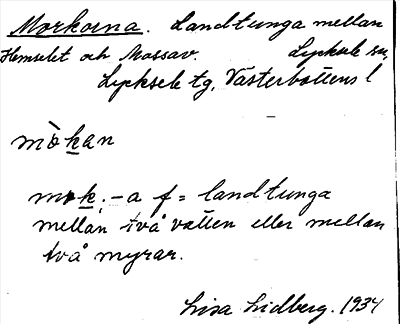 Morkarna. Landtunga mellan
Hemselet och Mossav. Lycksele sn,
Lycksele tg, Västerbottens l
mòkan
mok, -a f = landtunga
mellan två vatten eller mellan
två myrar.
Lisa Lidberg. 1934